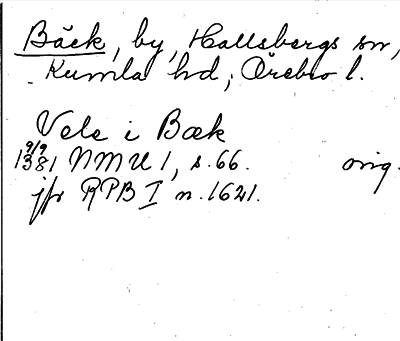 Bäck, by, Hallsbergs sn,
Kumla hd, Örebro l.
Vele i Bæk
9/9
1381 NMU 1, s. 66. orig.
jfr RPB I n. 1621.